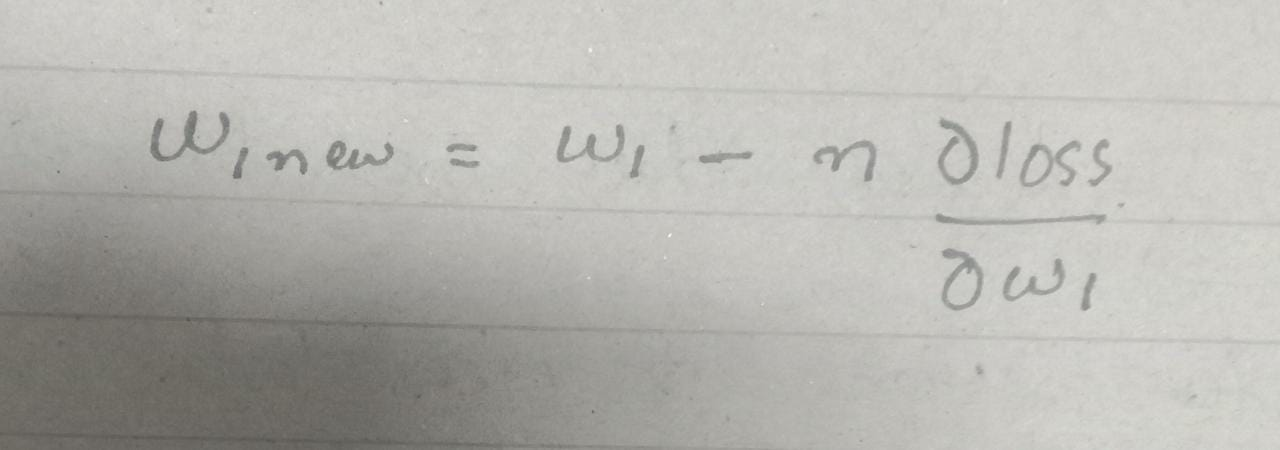 w₁new = w₁ - n ∂loss/∂w₁